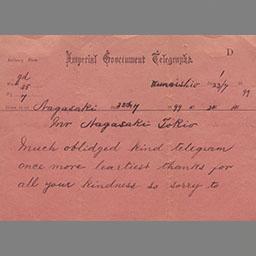 Delivery Form
D
Imperial Government Telegraphs.
Nagasaki 22/7 99
Mr Nagasaki Tokio
Much oblidged kind telegram
once more heartiest thanks for
all your kindness so sorry to